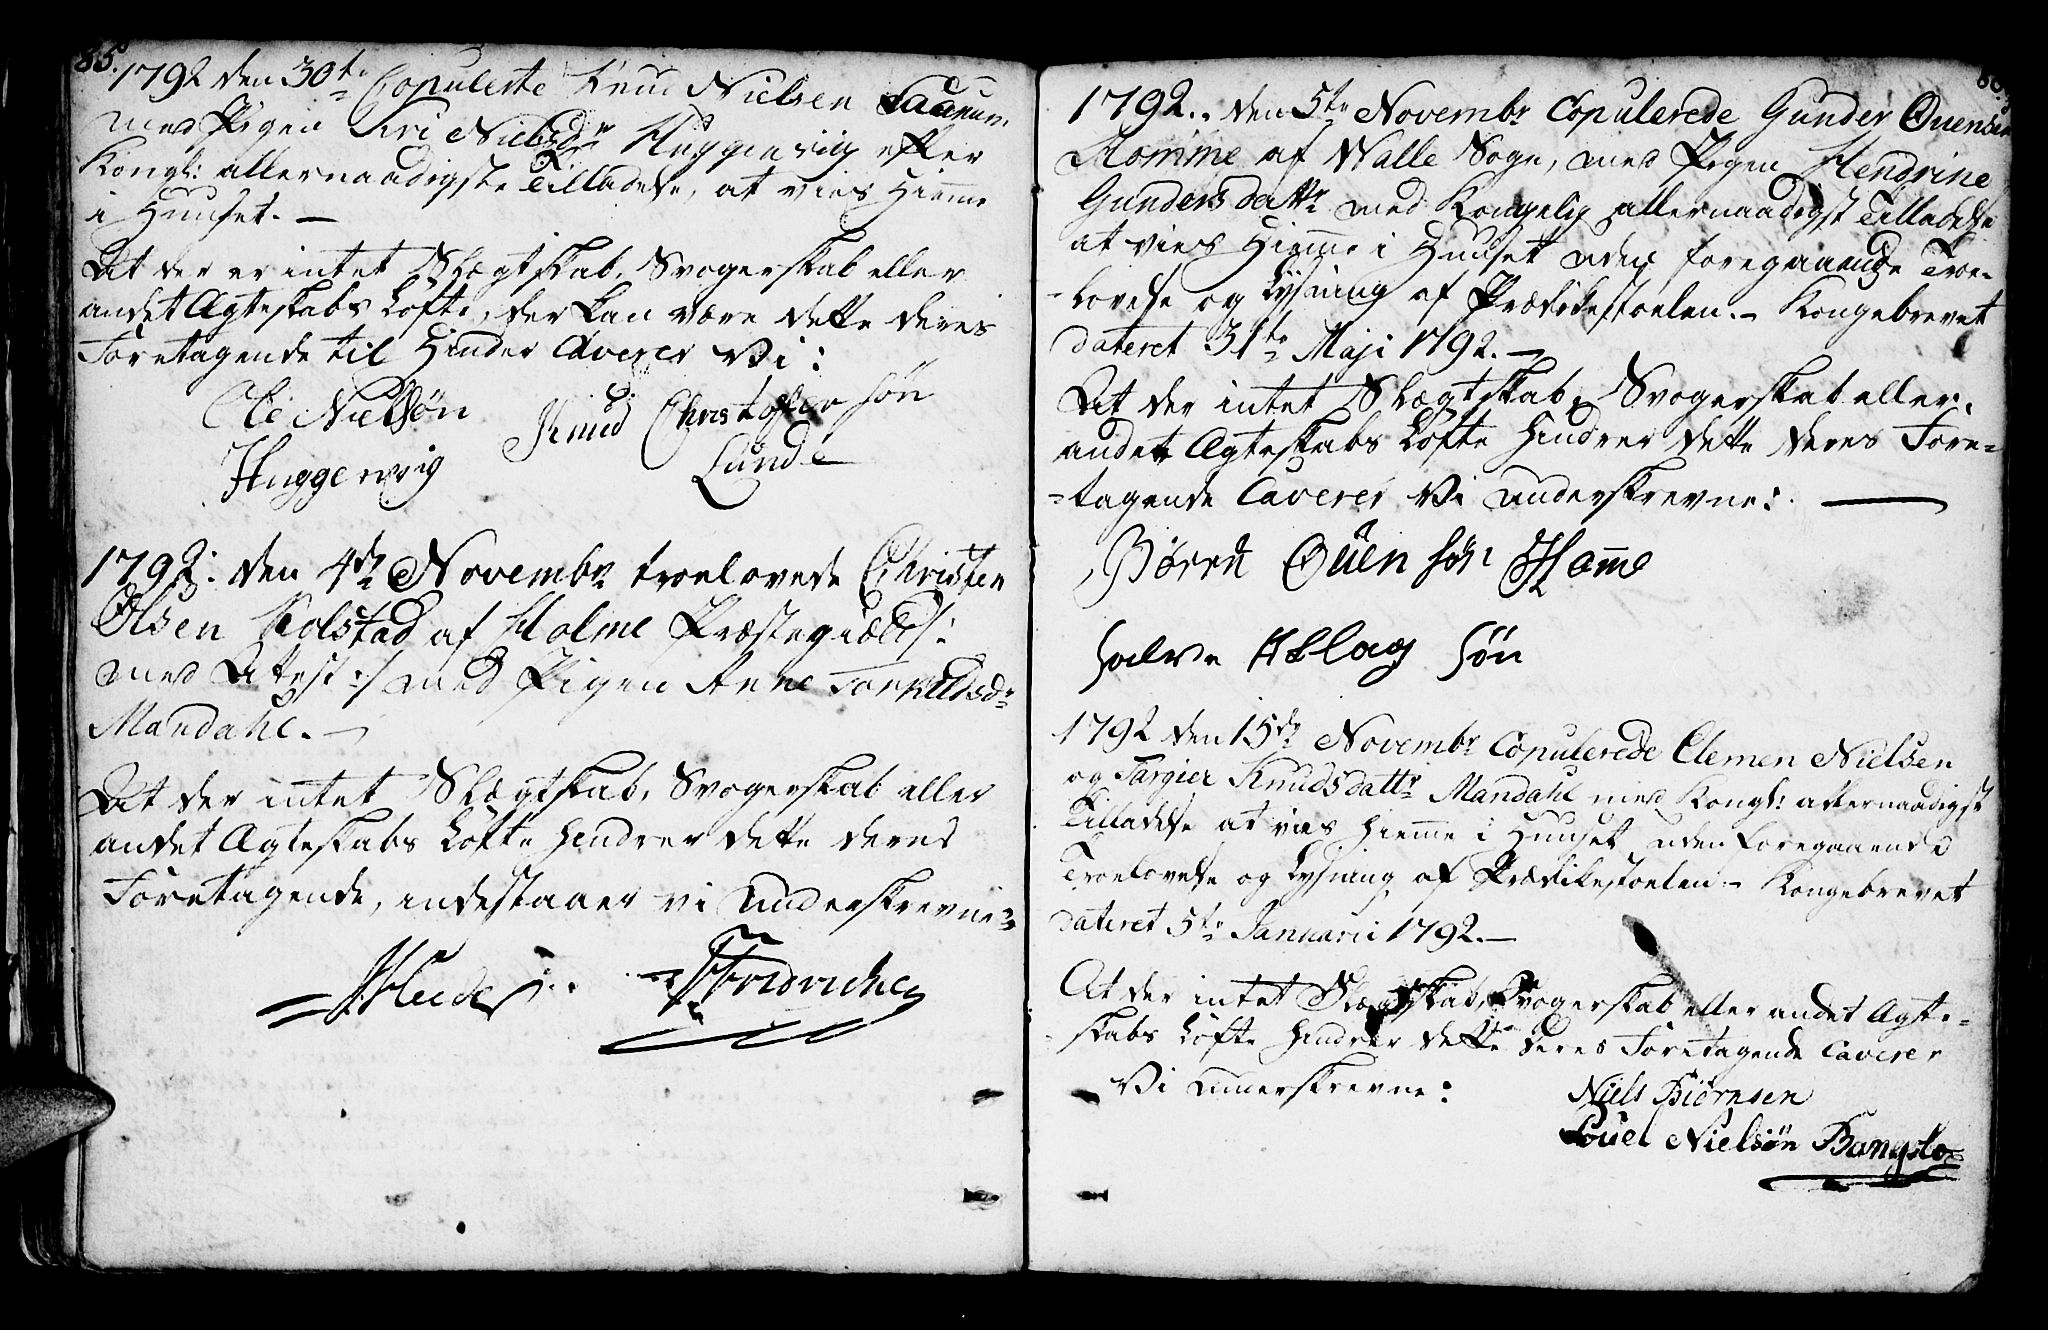 85.
1792 den 30te Copulerte Knud Nielsen
med Pigen Siri Nielsdr Huggenviig efter
Kongl: allernaadigste Tilladelse, at vies Hiemme
i Huuset. —
At der er intet Slægtskab, Svogerskab eller
andet Ægteskabs Løfte, der kan være dette deres
Foretagende til Hinder Caverer Vi:
Ole Nielsøn Knud Christoffersøn
Huggenvig Lunde
1792: den 4de Novembr troelovede Christen
Olsen Holstad af Holme Præstegield /:
med Attest :/ med Pigen Anne Torkildsdr
Mandahl. —
At der intet Slægtskab, Svogerskab eller
andet Ægteskabs Løfte hindrer dette deres
Foretagende, indestaaer vi underskrevne:
Fridrichsen
1792. den 5te Novembr Copulerede Gunder Ouensen
Homme af Walle Sogn, med Pigen Hendrine
Gundersdattr med Kongelig allernaadigst Tilladelse
at vies Hiemme i Huuset uden foregaaende Troe-
lovelse og Lysning af Prædikestoelen. – Kongebrevet
dateret 31te Maji 1792. —
At der intet Slægtskab, Svogerskab eller
andet Ægteskabs Løfte hindrer dette deres Fore-
=tagende Caverer Vi underskrevne: —
Børre Ouensøn Homme
halvor AsLag søn
1792 den 15de Novembr Copulerede Clemen Nielsen
og Targier Knudsdattr Mandahl med Kongl: allernaadigst
Tilladelse at vies hiemme i Huuset uden foregaaende
Troelovelse og Lysning af Prædikestoelen – Kongebrevet
dateret 5te Januarii 1792. —
At der intet Slægtskab, Svogerskab eller andet Ægte-
skabs Løfte hindrer dette deres Foretagende Caverer
Vi underskrevne:
Niels Biørnsen
Nielsøn